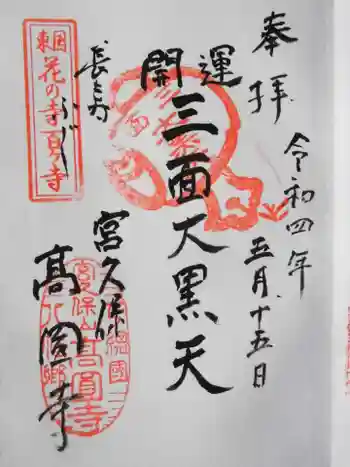 奉拝
令和四年
五月十五日
開運
三面大黒天
長寿
宮久保
高圓寺
東国
花の寺百ヶ寺
宮久保山
高圓寺